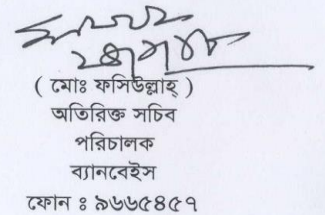 ( মোঃ ফসিউল্লাহ্ )
অতিরিক্ত সচিব
পরিচালক
ব্যানবেইস
ফোন ঃ ৯৬৬৫৪৫৭